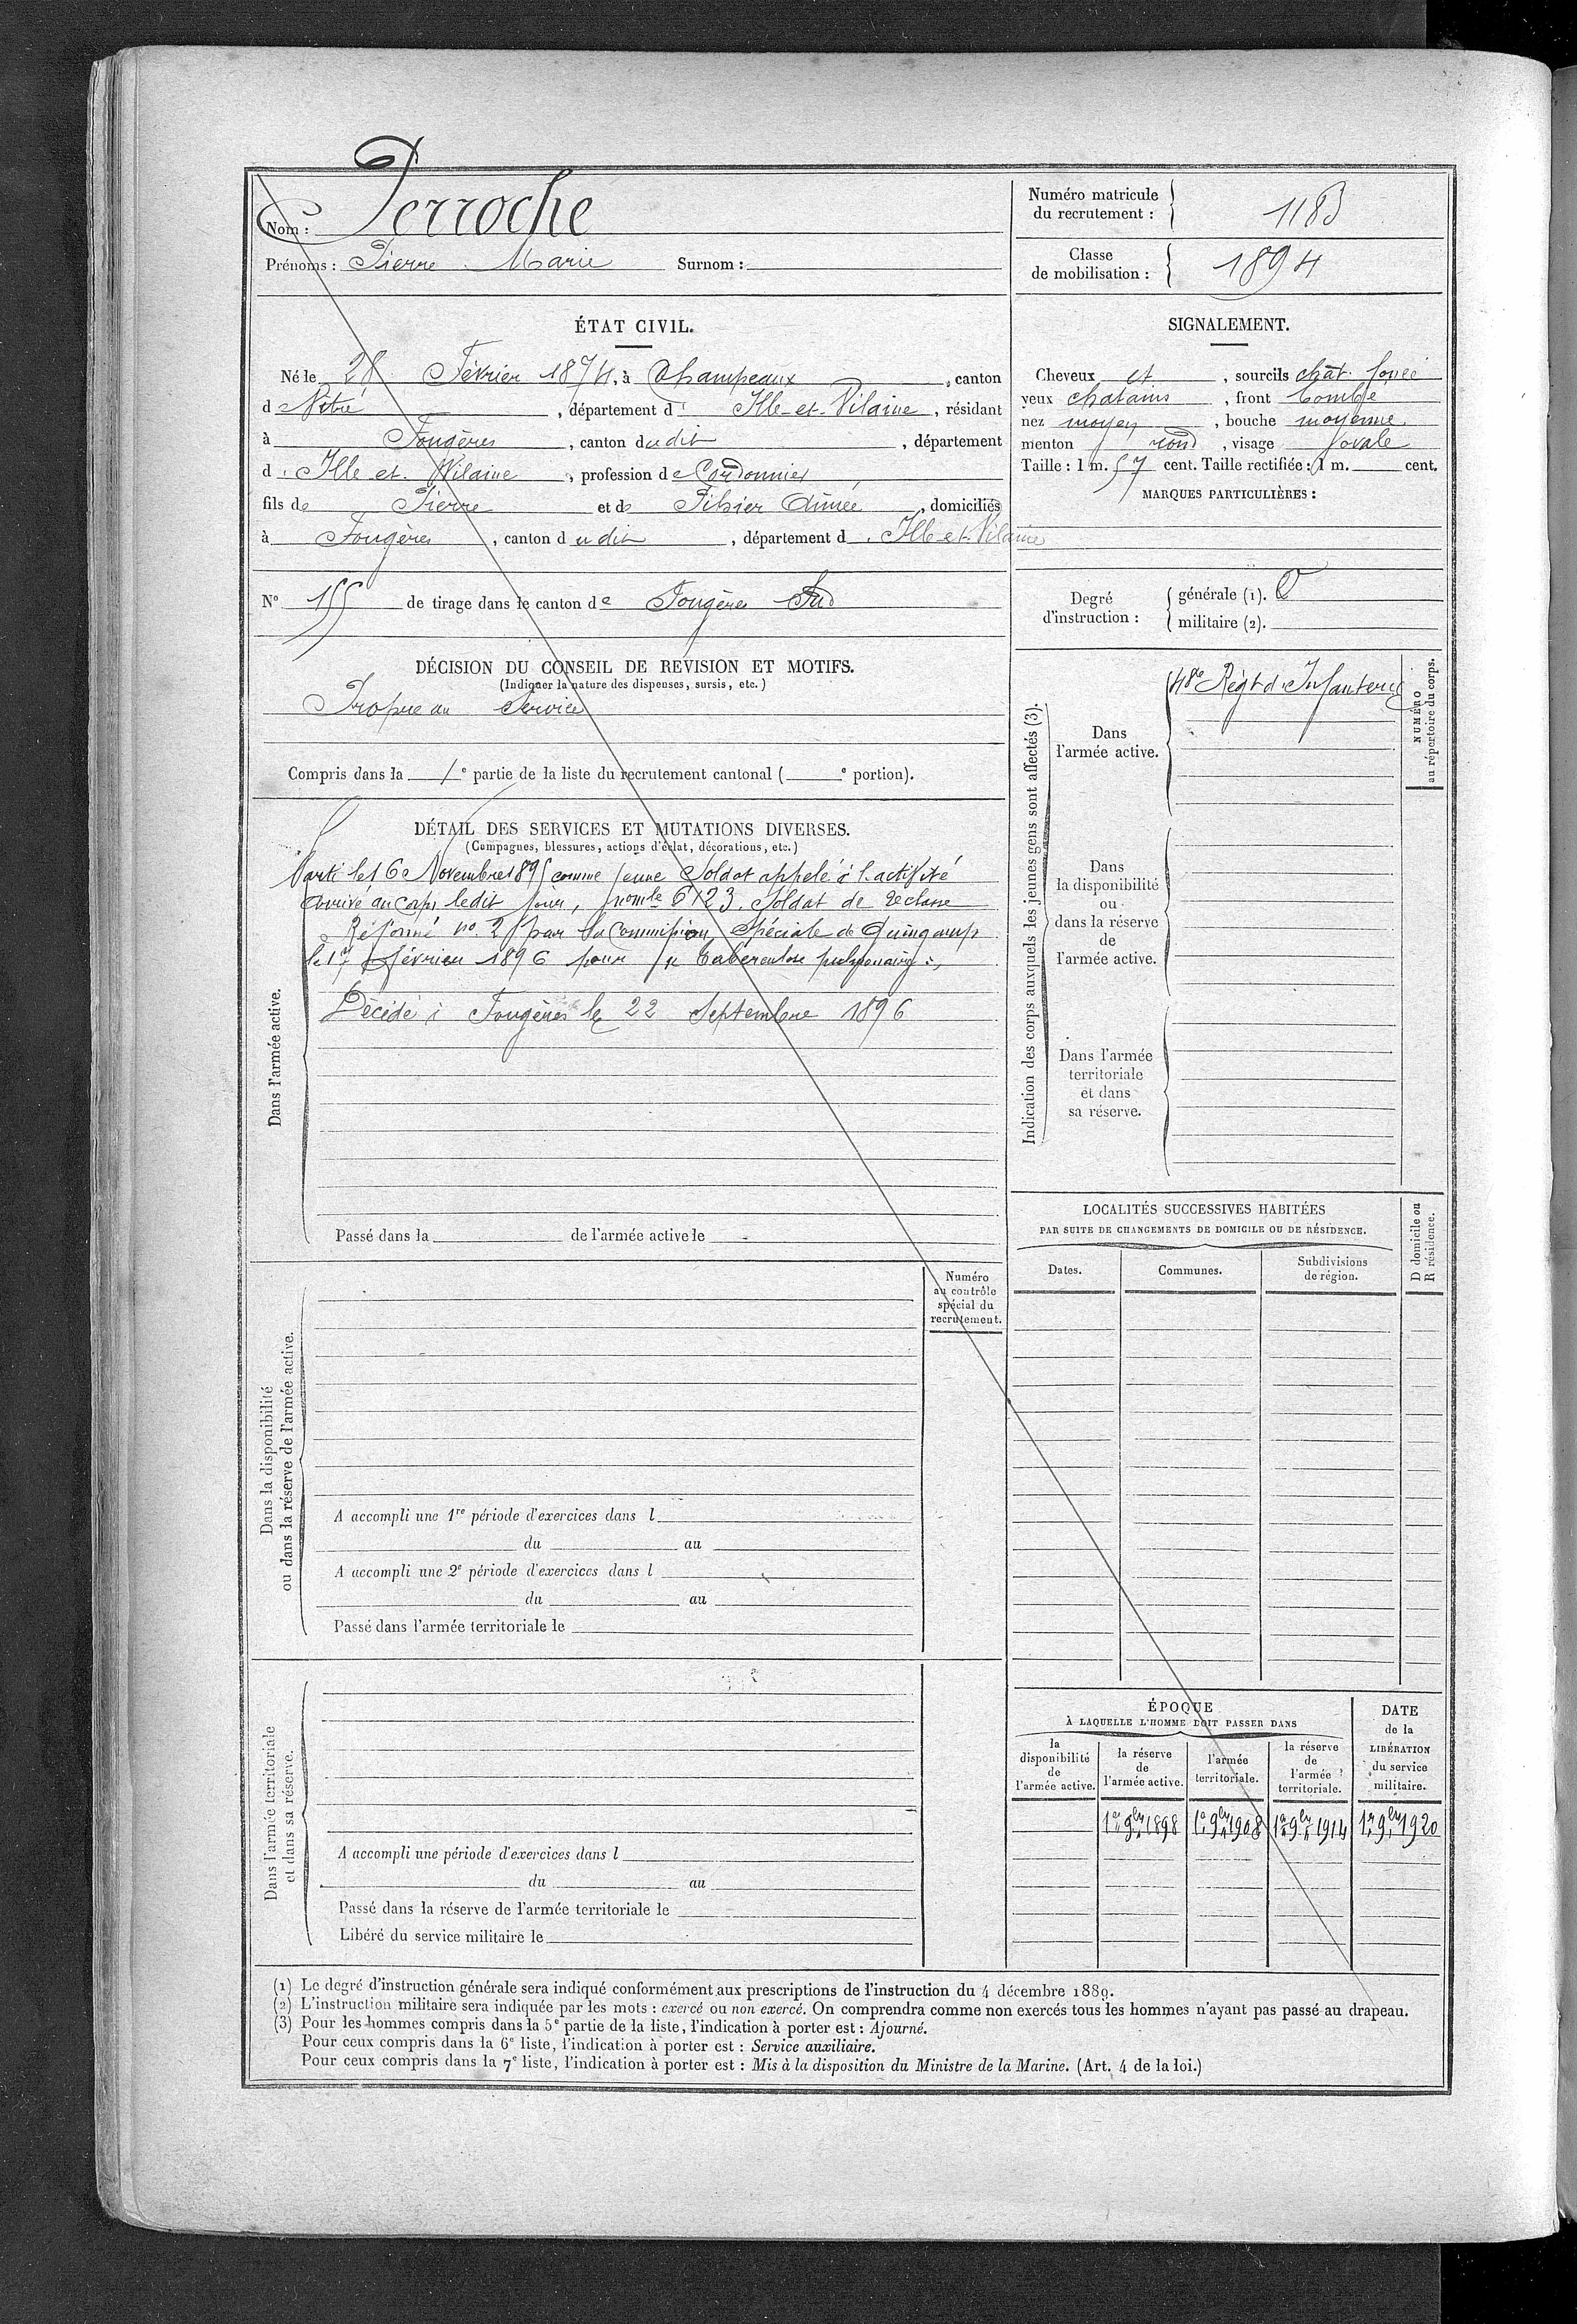 Nom : Perroche
Prénoms : Pierre Marie Surnom :
Numéro matricule du recrutement : 1183
Classe de mobilisation : 1894
ÉTAT CIVIL.
Né le 28 Février 1874, à Champeaux, canton
d Vitré, département d' Ille-et-Vilaine, résidant
à Fougères, canton dudit, département
d' Ille et Vilaine, profession de Cordonnier
fils de Pierre et de Aimée, domiciliés
à Fougères, canton dudit, département d' Ille-et-Vilaine
N° 155 de tirage dans le canton de Fougères Sud
DÉCISION DU CONSEIL DE REVISION ET MOTIFS.
(Indiquer la nature des dispenses, sursis, etc.)
Propre au Service
Compris dans la 1e partie de la liste du recrutement cantonal ( e portion).
DÉTAIL DES SERVICES ET MUTATIONS DIVERSES.
(Campagnes, blessures, actions d'éclat, décorations, etc.)
Dans l'armée active.
Parti le 16 Novembre 1895 comme jeune Soldat appelé à l'activité
Arrivé au Corps ledit jour, no mle 6123. Soldat de 2e classe
Réformé no. 2 par la Commission Spéciale de Guingamp
le 17 février 1896 pour " Tuberculose pulmonaire ",
Décédé à Fougères le 22 Septembre 1896
Passé dans la de l'armée active le
Dans la disponibilité
ou dans la réserve de l'armée active.
Numéro
au contrôle
spécial du
recrutement.
A accompli une 1re période d'exercices dans l
du au
A accompli une 2e période d'exercices dans l
du au
Passé dans l'armée territoriale le
Dans l'armée territoriale
et dans sa réserve.
A accompli une période d'exercices dans l
du au
Passé dans la réserve de l'armée territoriale le
Libéré du service militaire le
SIGNALEMENT.
Cheveux et, sourcils chât. foncé
yeux chatains, front bombé
nez moyen, bouche moyenne
menton rond, visage ovale
Taille : 1 m. 57 cent. Taille rectifiée : 1 m. cent.
MARQUES PARTICULIÈRES :
Degré d'instruction :
générale (1). 0
militaire (2).
Indication des corps auxquels les jeunes gens sont affectés (3).
NUMÉRO
au répertoire du corps.
Dans
l'armée active.
48e Régt d'Infanterie
Dans
la disponibilité
ou
dans la réserve
de
l'armée active.
Dans l'armée
territoriale
et dans
sa réserve.
LOCALITÉS SUCCESSIVES HABITÉES
PAR SUITE DE CHANGEMENTS DE DOMICILE OU DE RÉSIDENCE.
D domicile ou
R résidence.
Dates. Communes. Subdivisions de région.
ÉPOQUE
À LAQUELLE L'HOMME DOIT PASSER DANS
la disponibilité de l'armée active.
la réserve de l'armée active.
l'armée territoriale.
la réserve de l'armée territoriale.
DATE de la LIBÉRATION du service militaire.
1er 9bre 1898 1er 9bre 1908 1er 9bre 1914 1er 9bre 1920
(1) Le degré d'instruction générale sera indiqué conformément aux prescriptions de l'instruction du 4 décembre 1889.
(2) L'instruction militaire sera indiquée par les mots : exercé ou non exercé. On comprendra comme non exercés tous les hommes n'ayant pas passé au drapeau.
(3) Pour les hommes compris dans la 5e partie de la liste, l'indication à porter est : Ajourné.
Pour ceux compris dans la 6e liste, l'indication à porter est : Service auxiliaire.
Pour ceux compris dans la 7e liste, l'indication à porter est : Mis à la disposition du Ministre de la Marine. (Art. 4 de la loi.)